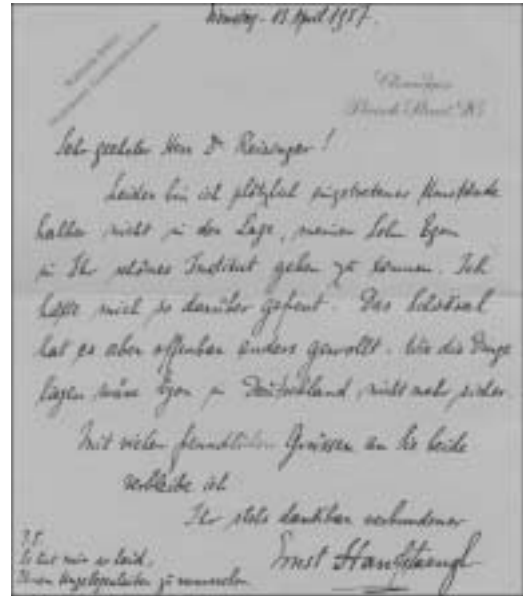 Dienstag - 13 April 1937.
Sehr geehrter Herr Dr Reisinger!
Leider bin ich plötzlich eingetretener Umstände
halber nicht in der Lage, meinen Sohn Egon
in Ihr schönes Institut geben zu können. Ich
hatte mich so darüber gefreut. Das Schicksal
hat es aber offenbar anders gewollt. Wie die Dinge
liegen wäre Egon in Deutschland nicht mehr sicher.
Mit vielen freundlichen Grüssen an Sie beide
verbleibe ich
Ihr stets dankbar verbundener
Ernst Hanfstaengl
P.S.
Es tut mir so leid,
Ihnen Ungelegenheiten zu